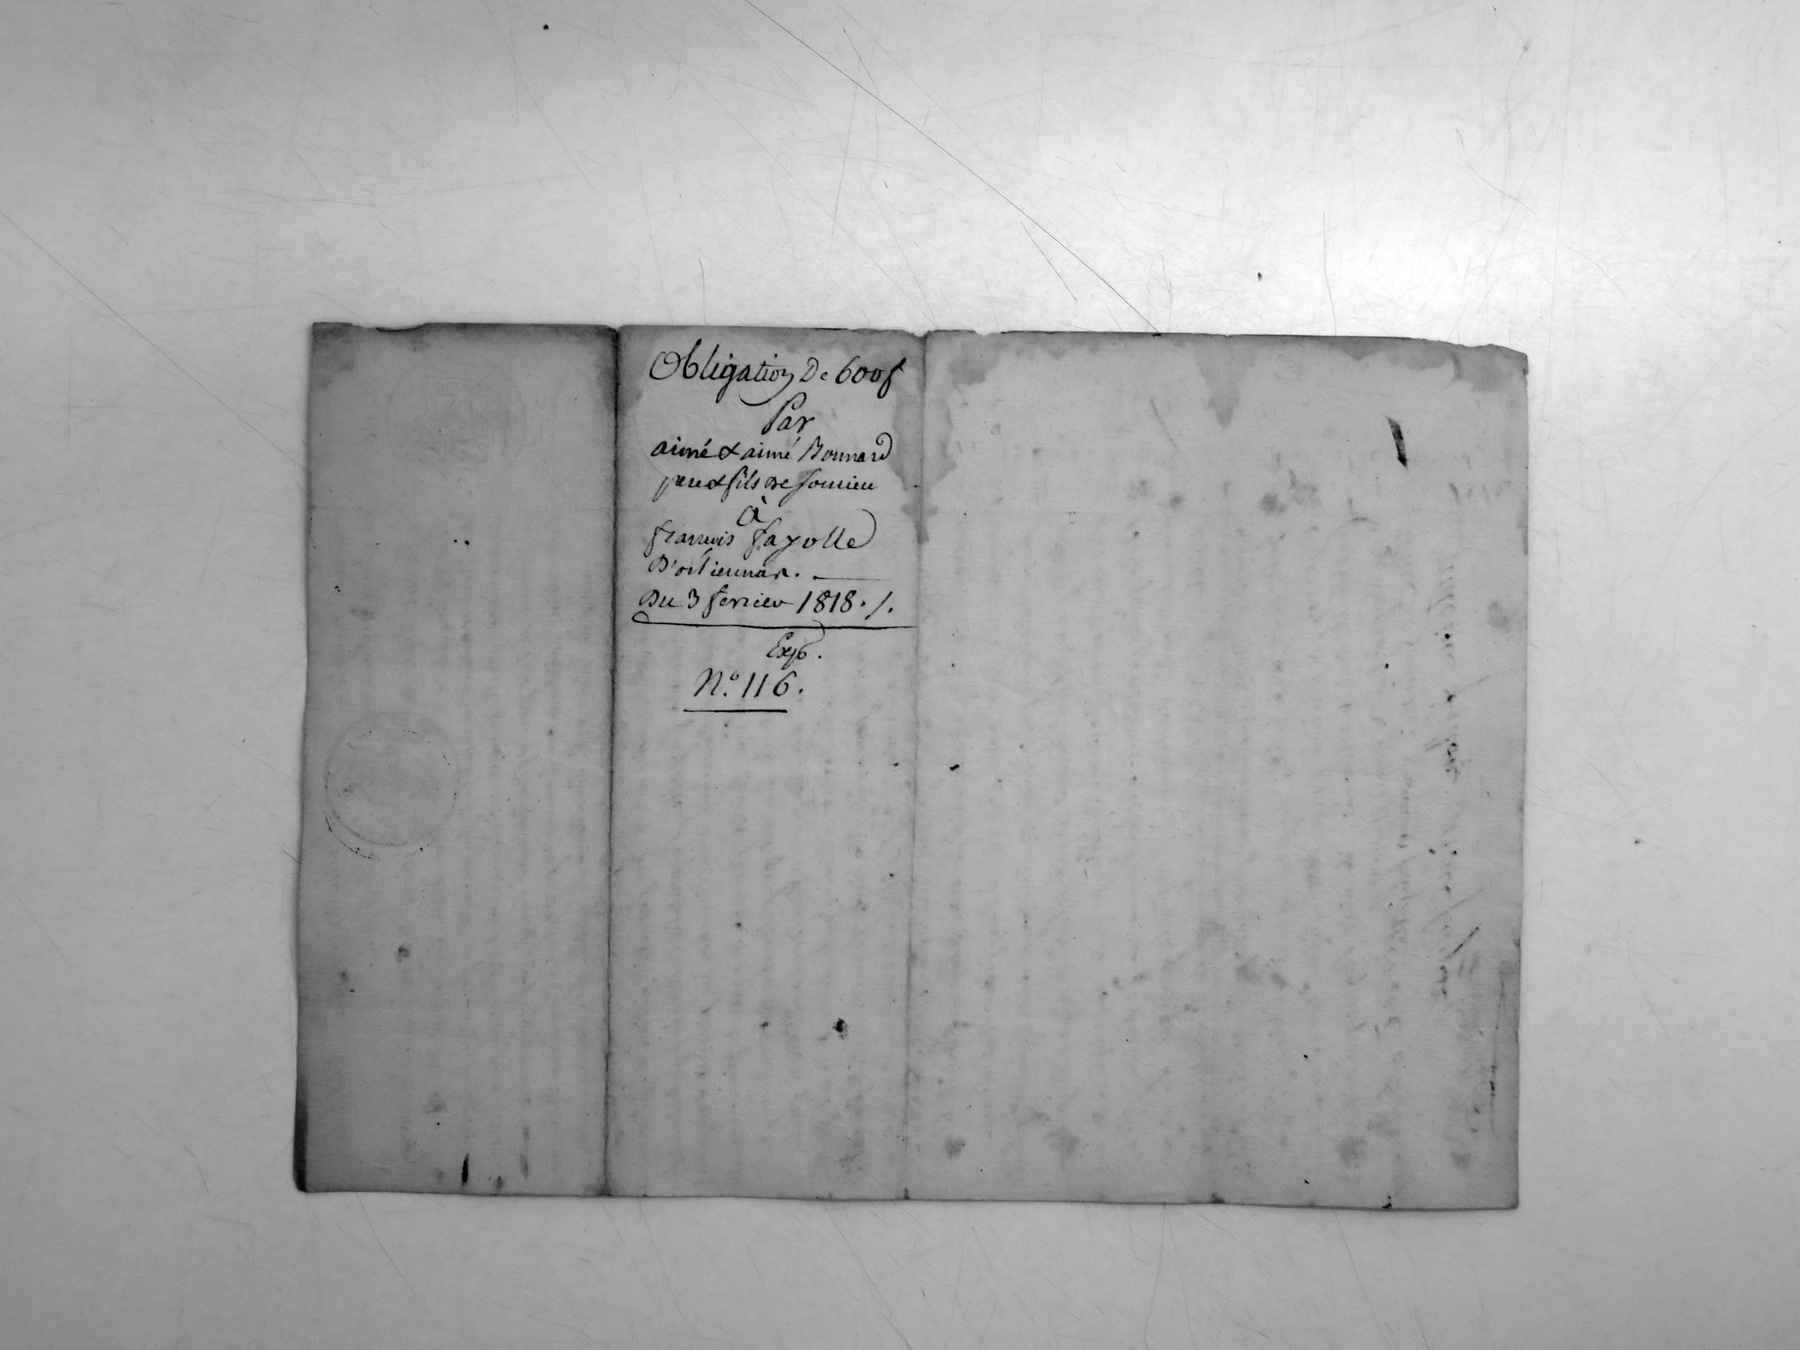 Obligation De 600f
Par
aimé & aimé Bonnard
pere & fils de Soucieu
à
francois fayolle
D'orliennas.
Du 3 fevrier 1818. /.
Exp.
N.o 116.